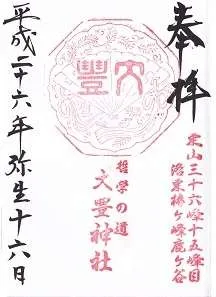 奉拝
東山三十六峰十五峰目
洛東椿ケ峰鹿ケ谷
文豊
哲学の道
大豊神社
平成二十六年弥生十六日